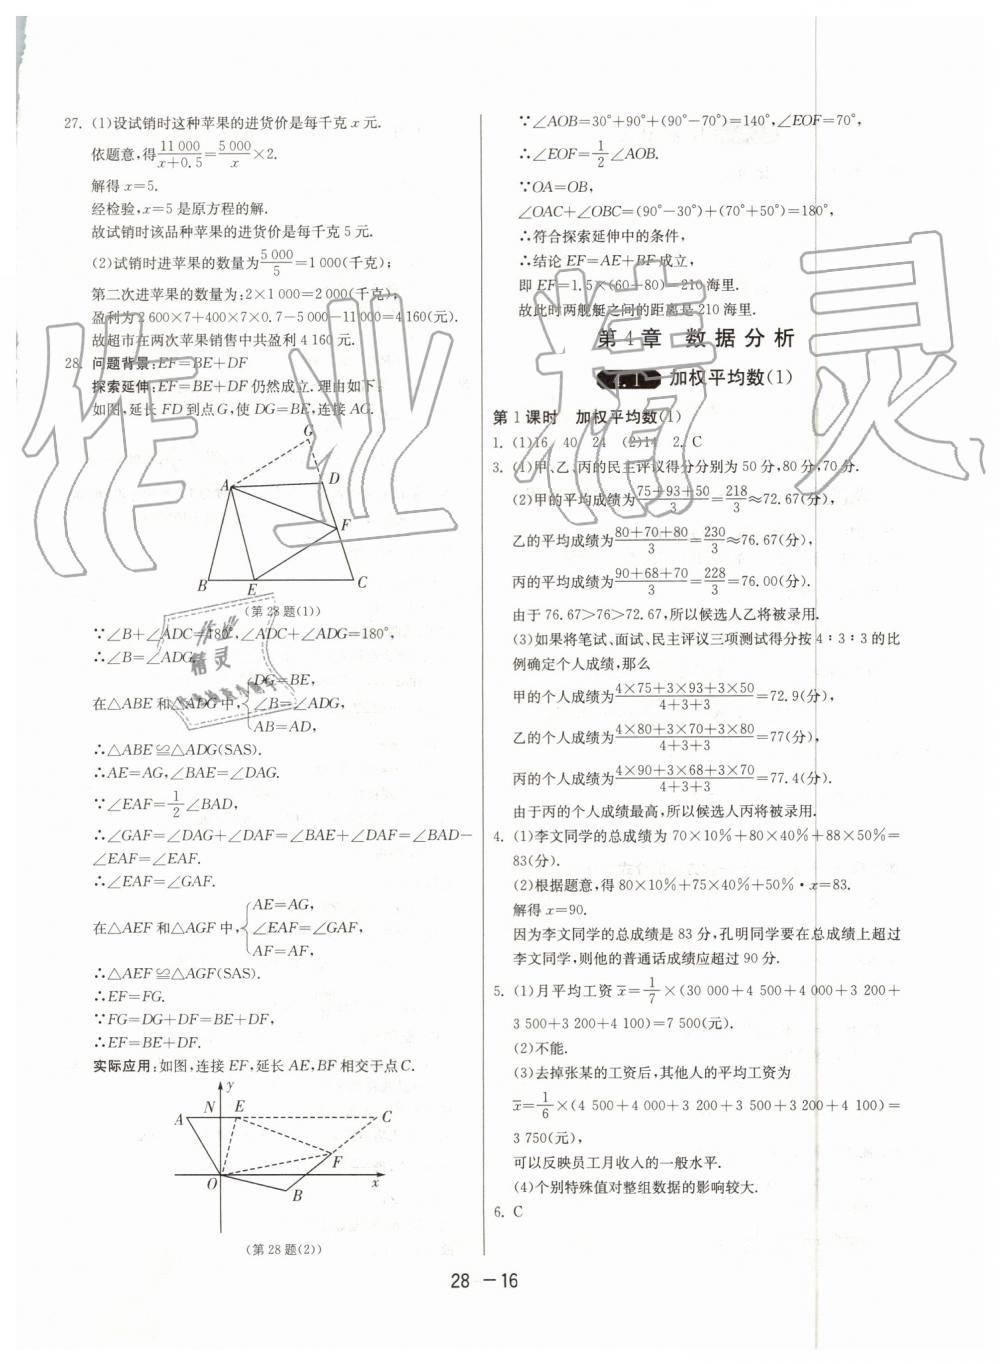 27. (1)设试销时这种苹果的进货价是每千克 x 元.
依题意,得11 000/(x+0.5)=5 000/x×2.
解得 x=5.
经检验,x=5 是原方程的解.
故试销时该品种苹果的进货价是每千克 5 元.
(2)试销时进苹果的数量为5 000/5=1 000(千克);
第二次进苹果的数量为:2×1 000=2 000(千克);
盈利为 2 600×7+400×7×0.7-5 000-11 000=4 160(元).
故超市在两次苹果销售中共盈利 4 160 元.
28. 问题背景:EF=BE+DF
探索延伸:EF=BE+DF 仍然成立.理由如下:
如图,延长 FD 到点 G,使 DG=BE,连接 AG.
G
A
D
F
B
E
C
(第 28 题(1))
∵∠B+∠ADC=180°,∠ADC+∠ADG=180°,
∴∠B=∠ADG.
在△ABE 和△ADG 中,{DG=BE,
∠B=∠ADG,
AB=AD,
∴△ABE≌△ADG(SAS).
∴AE=AG,∠BAE=∠DAG.
∵∠EAF=1/2∠BAD,
∴∠GAF=∠DAG+∠DAF=∠BAE+∠DAF=∠BAD-
∠EAF=∠EAF.
∴∠EAF=∠GAF.
在△AEF 和△AGF 中,{AE=AG,
∠EAF=∠GAF,
AF=AF,
∴△AEF≌△AGF(SAS).
∴EF=FG.
∵FG=DG+DF=BE+DF,
∴EF=BE+DF.
实际应用:如图,连接 EF,延长 AE,BF 相交于点 C.
y
A
N
E
C
F
O
B
x
(第 28 题(2))
∵∠AOB=30°+90°+(90°-70°)=140°,∠EOF=70°,
∴∠EOF=1/2∠AOB.
∵OA=OB,
∠OAC+∠OBC=(90°-30°)+(70°+50°)=180°,
∴符合探索延伸中的条件,
∴结论 EF=AE+BF 成立,
即 EF=1.5×(60+80)=210 海里.
故此时两舰艇之间的距离是 210 海里.
第 4 章 数据分析
4.1 加权平均数(1)
第 1 课时 加权平均数(1)
1. (1)16 40 24 (2)14 2. C
3. (1)甲、乙、丙的民主评议得分分别为 50 分,80 分,70 分.
(2)甲的平均成绩为(75+93+50)/3=218/3≈72.67(分),
乙的平均成绩为(80+70+80)/3=230/3≈76.67(分),
丙的平均成绩为(90+68+70)/3=228/3=76.00(分).
由于 76.67>76>72.67,所以候选人乙将被录用.
(3)如果将笔试、面试、民主评议三项测试得分按 4∶3∶3 的比
例确定个人成绩,那么
甲的个人成绩为(4×75+3×93+3×50)/(4+3+3)=72.9(分),
乙的个人成绩为(4×80+3×70+3×80)/(4+3+3)=77(分),
丙的个人成绩为(4×90+3×68+3×70)/(4+3+3)=77.4(分).
由于丙的个人成绩最高,所以候选人丙将被录用.
4. (1)李文同学的总成绩为 70×10%+80×40%+88×50%=
83(分).
(2)根据题意,得 80×10%+75×40%+50%·x=83.
解得 x=90.
因为李文同学的总成绩是 83 分,孔明同学要在总成绩上超过
李文同学,则他的普通话成绩应超过 90 分.
5. (1)月平均工资 x̄=1/7×(30 000+4 500+4 000+3 200+
3 500+3 200+4 100)=7 500(元).
(2)不能.
(3)去掉张某的工资后,其他人的平均工资为
x̄=1/6×(4 500+4 000+3 200+3 500+3 200+4 100)=
3 750(元),
可以反映员工月收入的一般水平.
(4)个别特殊值对整组数据的影响较大.
6. C
28 —16
作业精灵
作业
精灵